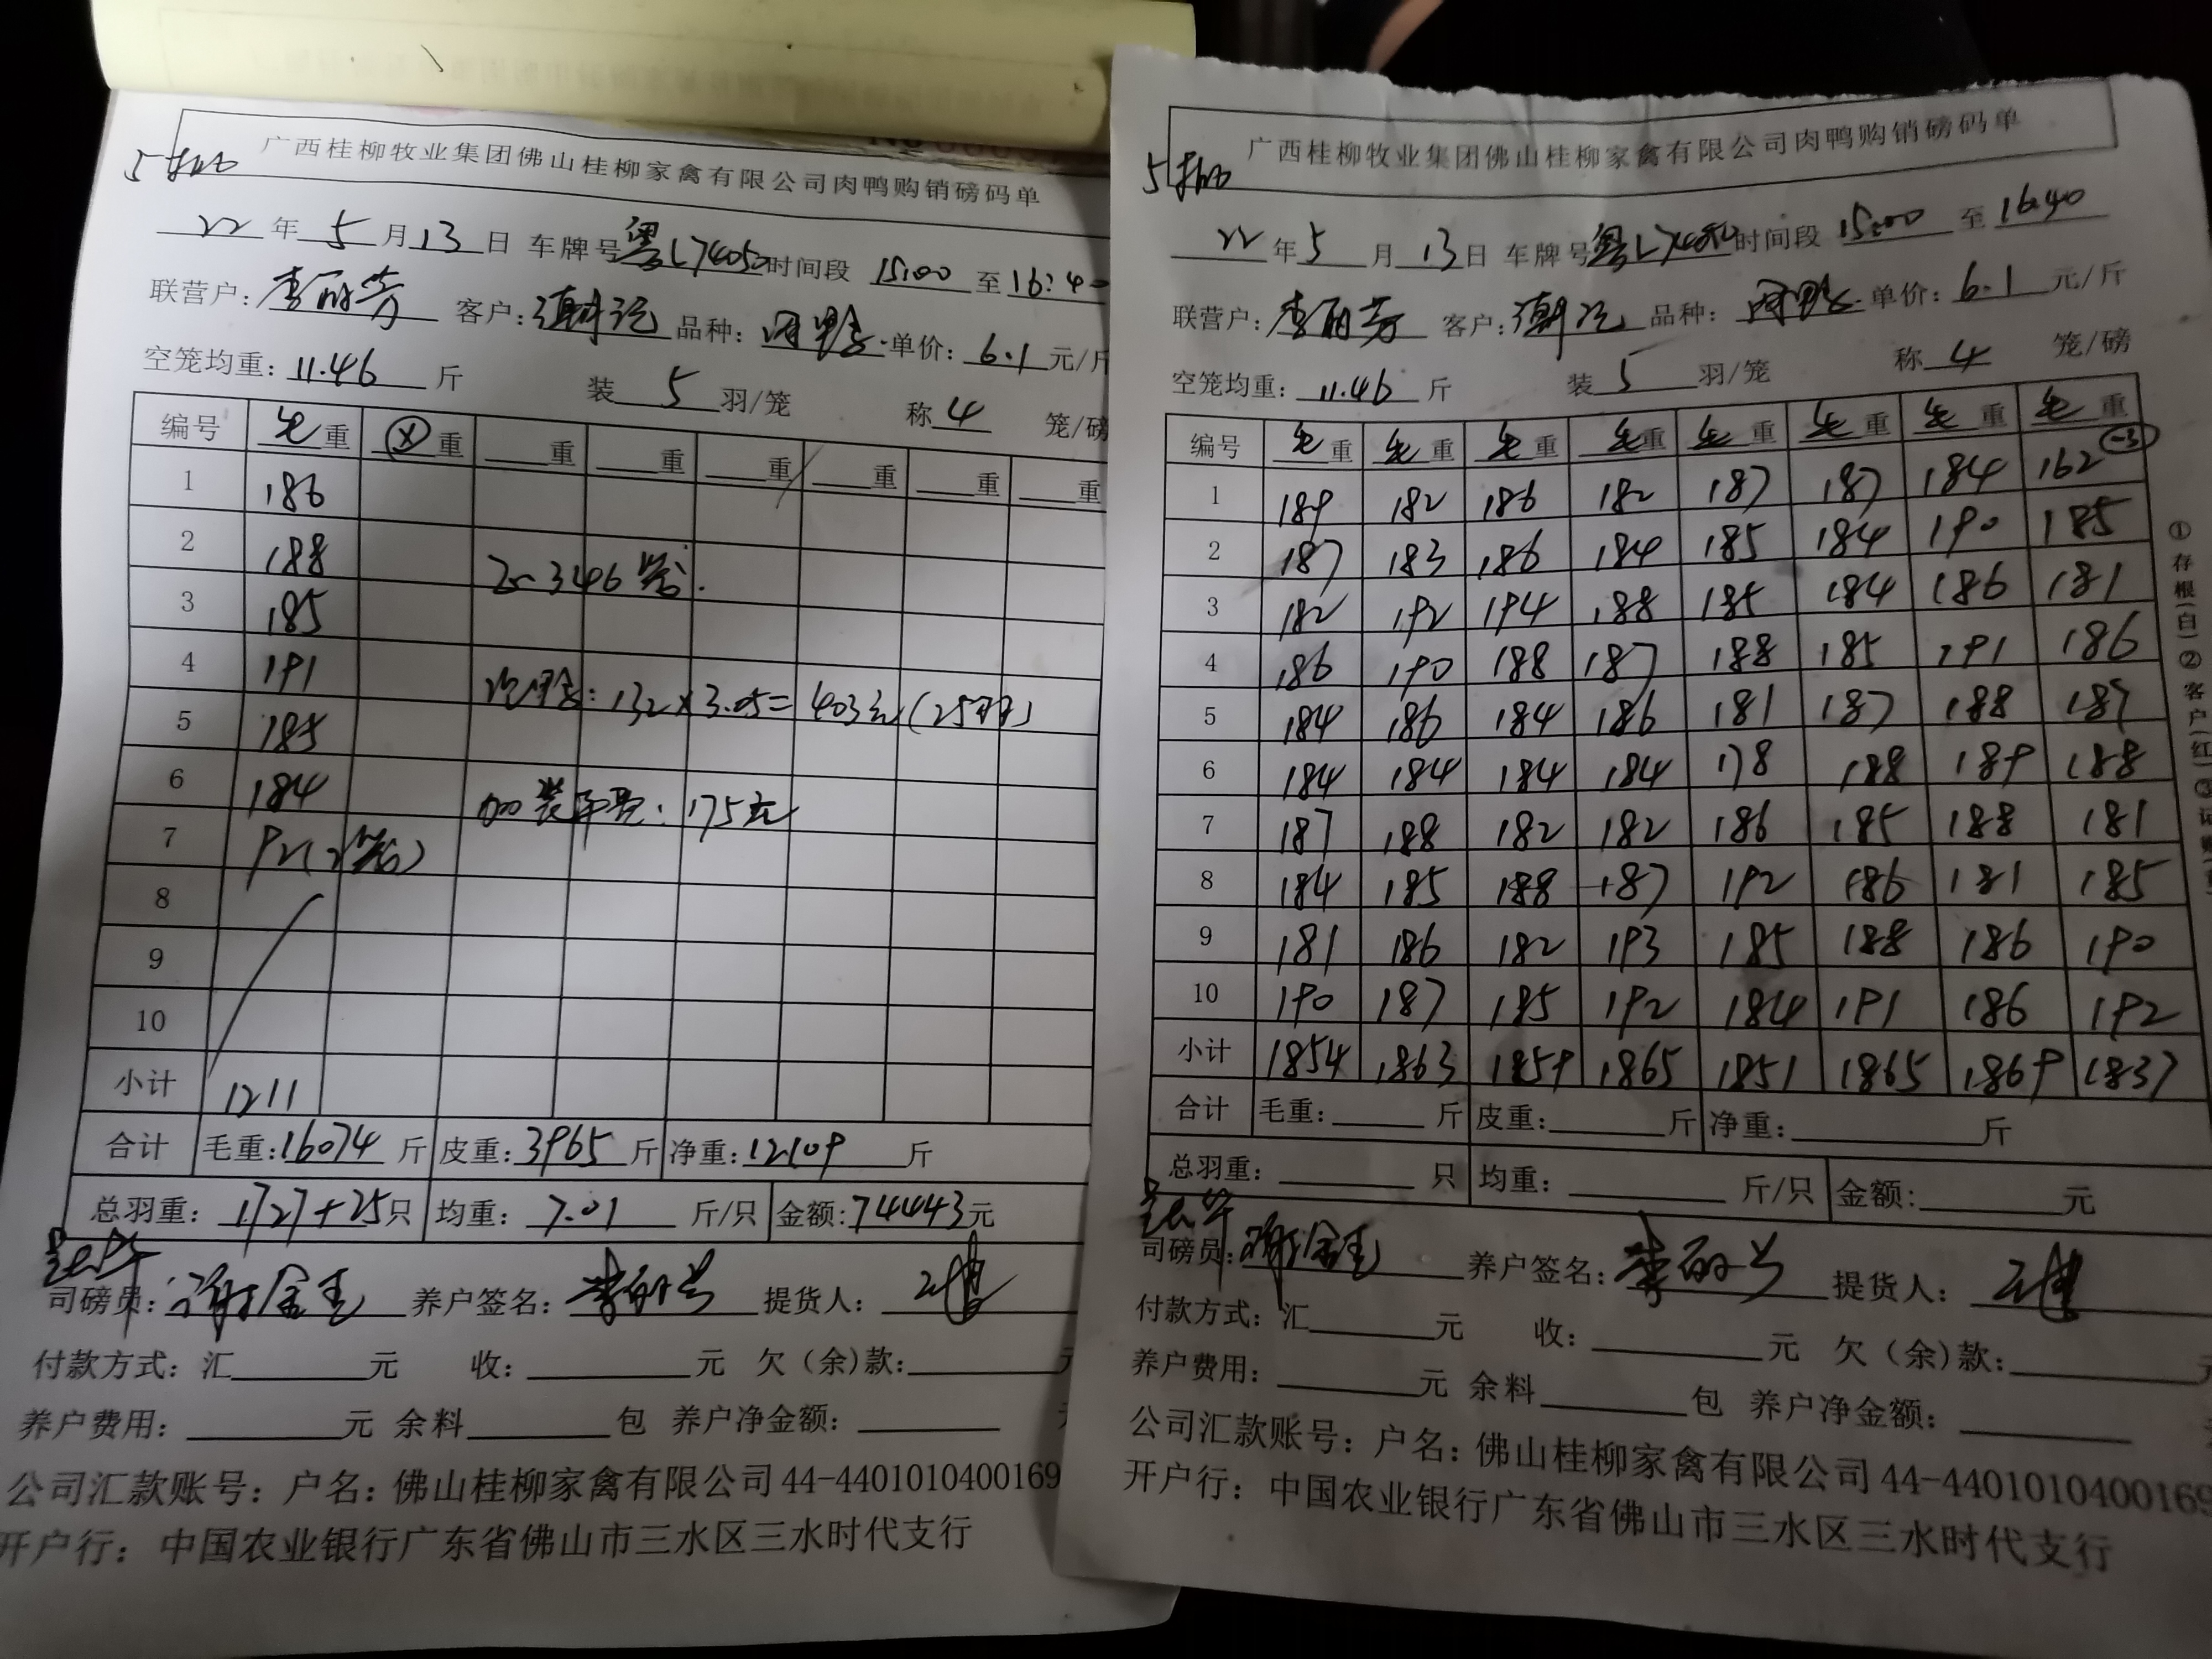 广西桂柳牧业集团佛山桂柳家禽有限公司肉鸭购销磅码单
22年5月13日 车牌号粤L74050时间段 15:00 至 16:40
联营户:李丽芳 客户:潮记 品种: 单价:6.1元/斤
空笼均重:11.46斤 装5羽/笼 称4笼/磅
编号 毛重 重 重 重 重 重 重 重
1 186
2 188 346笼
3 185
4 191 132×3.05=403元(25羽)
5 185
6 184 加装车费:175元
7 92(2笼)
8
9
10
小计 1211
合计 毛重:16074斤 皮重:3965斤 净重:12109斤
总羽重:1727+25只 均重:7.01斤/只 金额:74443元
司磅员: 养户签名: 提货人:
付款方式:汇 元 收: 元 欠(余)款:
养户费用: 元 余料 包 养户净金额:
公司汇款账号:户名:佛山桂柳家禽有限公司44-4401010400169
开户行:中国农业银行广东省佛山市三水区三水时代支行
广西桂柳牧业集团佛山桂柳家禽有限公司肉鸭购销磅码单
22年5月13日 车牌号粤L74050时间段 15:00 至 16:40
联营户:李丽芳 客户:潮记 品种: 单价:6.1元/斤
空笼均重:11.46斤 装5羽/笼 称4笼/磅
编号 毛重 毛重 毛重 毛重 毛重 毛重 毛重 毛重
1 189 182 186 182 187 187 184 162 -3
2 187 183 186 184 185 184 190 185
3 182 192 194 188 185 184 186 181
4 186 190 188 187 188 185 191 186
5 184 186 184 186 181 187 188 187
6 184 184 184 184 178 188 189 188
7 187 188 182 182 186 185 188 181
8 184 185 188 187 192 186 181 185
9 181 186 182 193 185 188 186 190
10 190 187 185 192 184 191 186 192
小计 1854 1863 1859 1865 1851 1865 1869 1837
合计 毛重: 斤 皮重: 斤 净重: 斤
总羽重: 只 均重: 斤/只 金额: 元
司磅员: 养户签名: 提货人:
付款方式:汇 元 收: 元 欠(余)款:
养户费用: 元 余料 包 养户净金额:
公司汇款账号:户名:佛山桂柳家禽有限公司44-4401010400169
开户行:中国农业银行广东省佛山市三水区三水时代支行
①存根(白)②客户(红)③